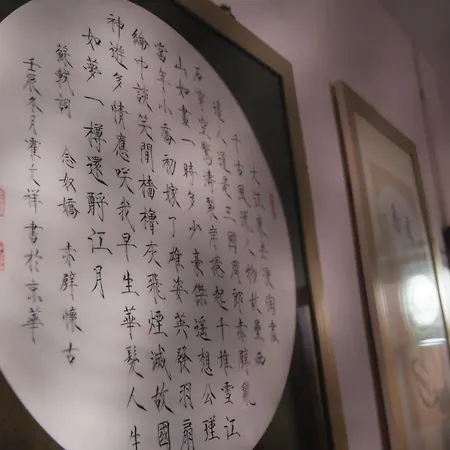 大江東去浪淘盡
千古風流人物故壘西
邊人道是三國周郎赤壁亂
石穿空驚濤裂岸捲起千堆雪江
山如畫一時多少豪傑遙想公瑾
當年小喬初嫁了雄姿英發羽扇
綸巾談笑間檣櫓灰飛煙滅故國
神遊多情應咲我早生華髮人生
如夢一樽還酹江月
蘇軾詞 念奴嬌 赤壁懷古
壬辰冬月 祥書於京華